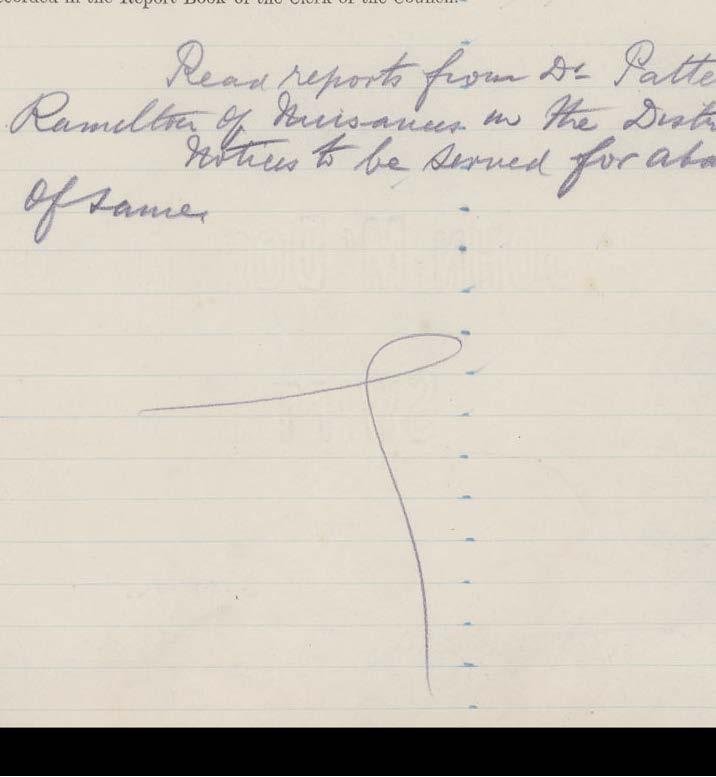 ecorded in the Report Book of the Clerk of the Council.
Read reports from Dr Patte
Ramelton of Nuisances in the Distr
Notices to be served for aba
of same.